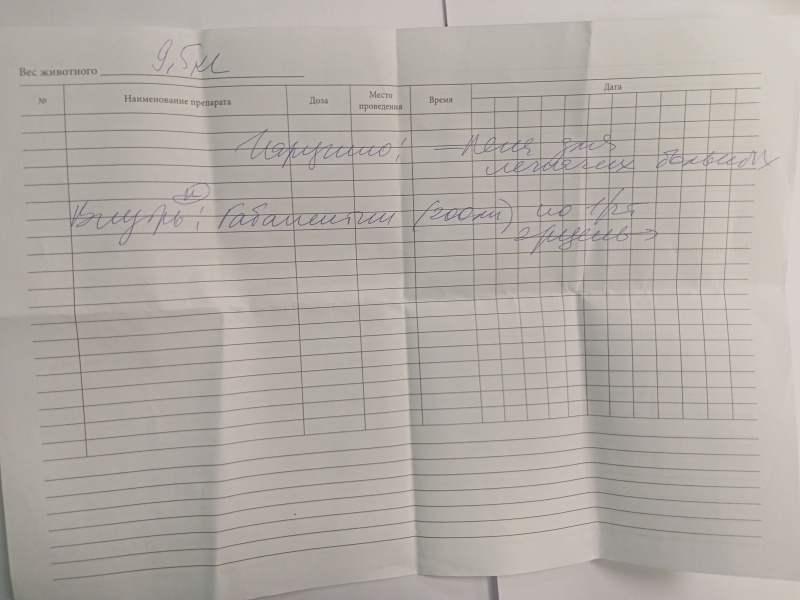 Вес животного 9,5 кг
№ Наименование препарата Доза Место проведения Время Дата
Наружно: – Пена для
лежачих больных
Внутрь: Габапентин (300мг) по 1/2т
→